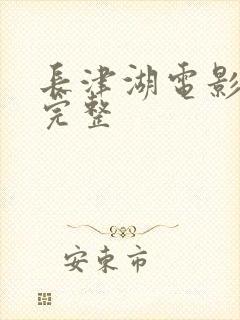 長津湖電影
完整
安東市